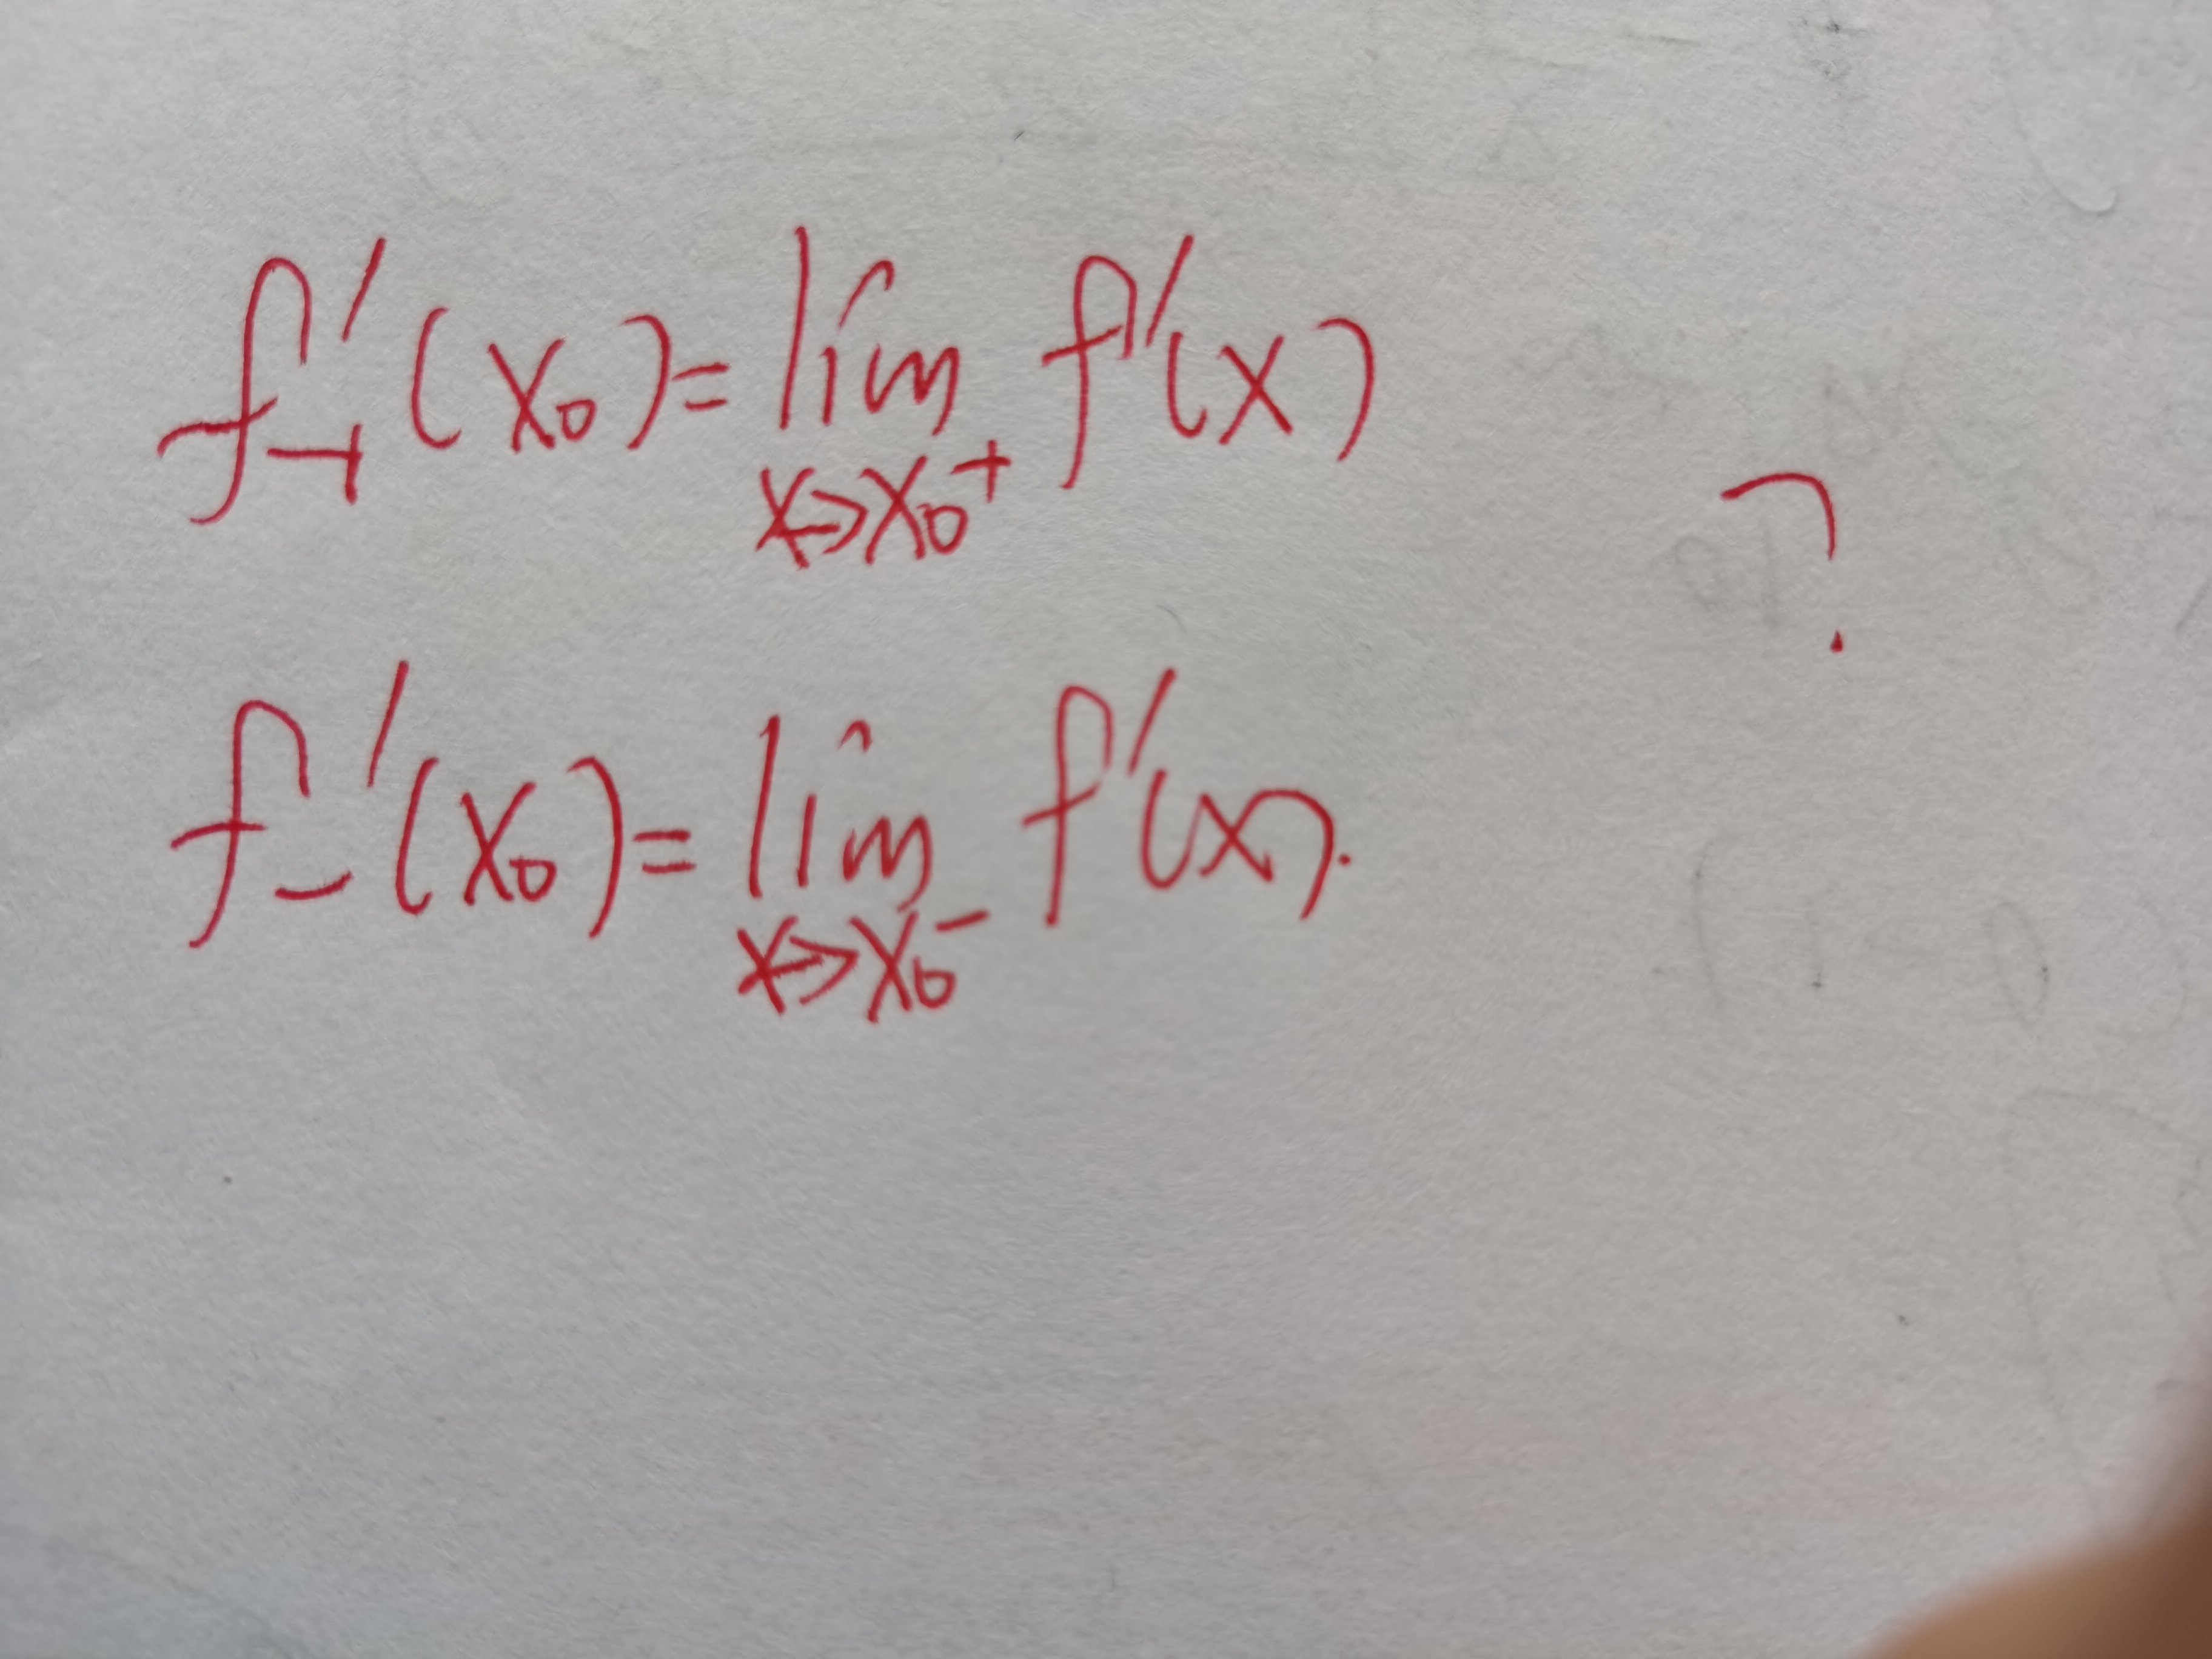 f₊′(x₀) = lim_{x→x₀⁺} f′(x)
?
f₋′(x₀) = lim_{x→x₀⁻} f′(x).